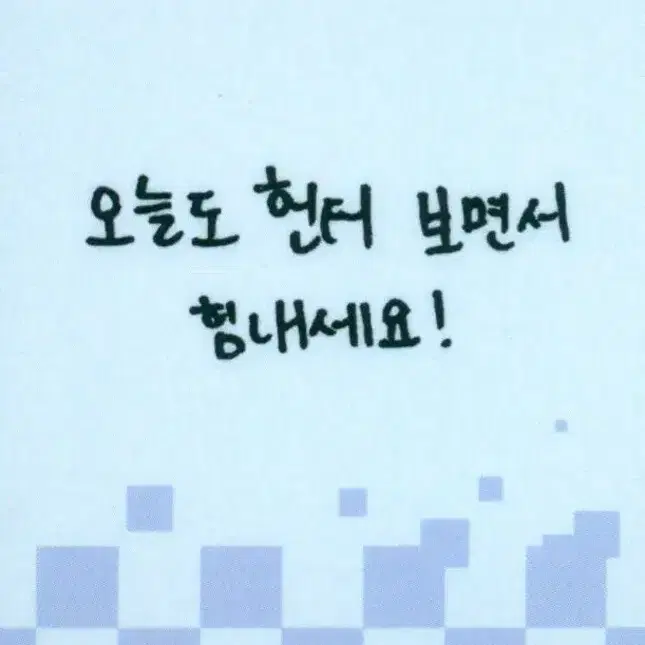 오늘도 헌터 보면서
힘내세요!